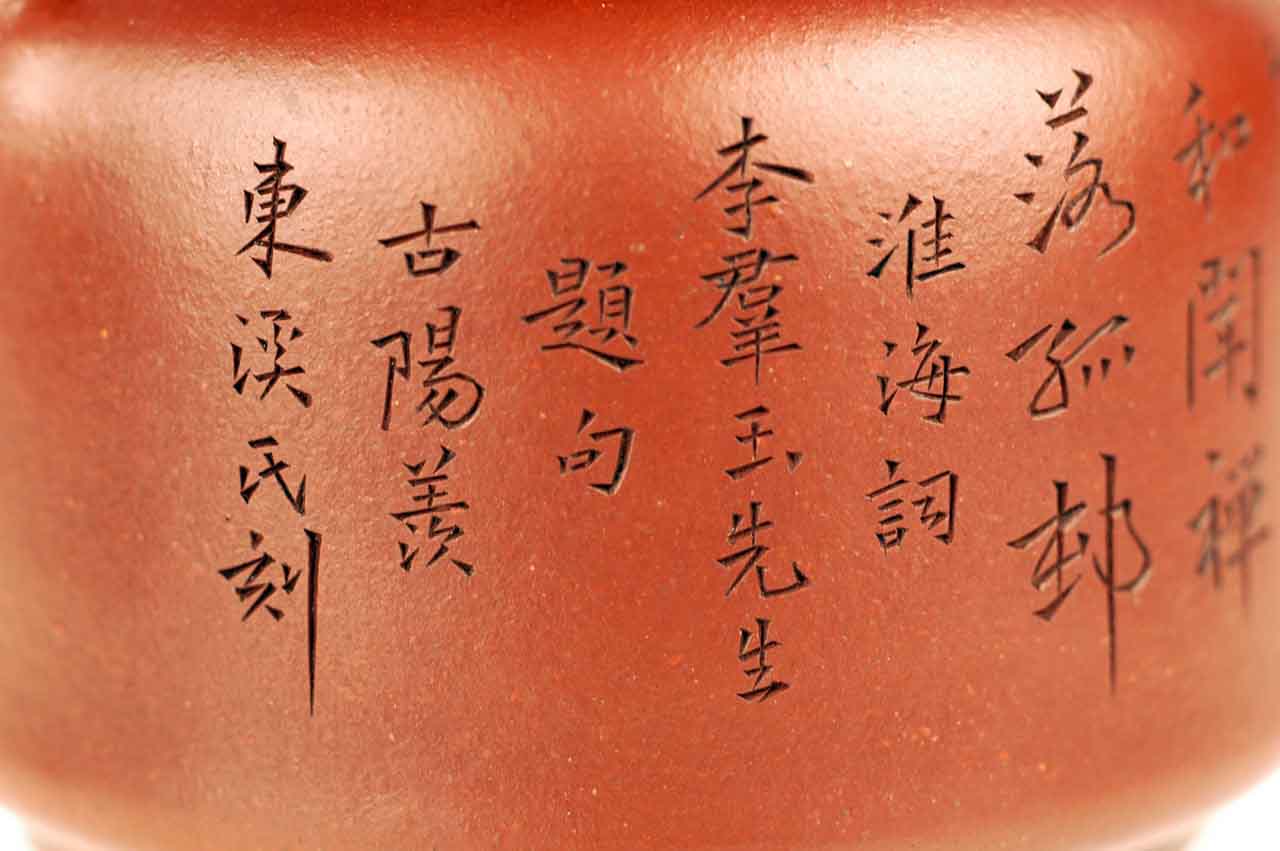 和禪
落孤邨
淮海詞
李羣玉先生
題句
古陽羨
東溪氏刻